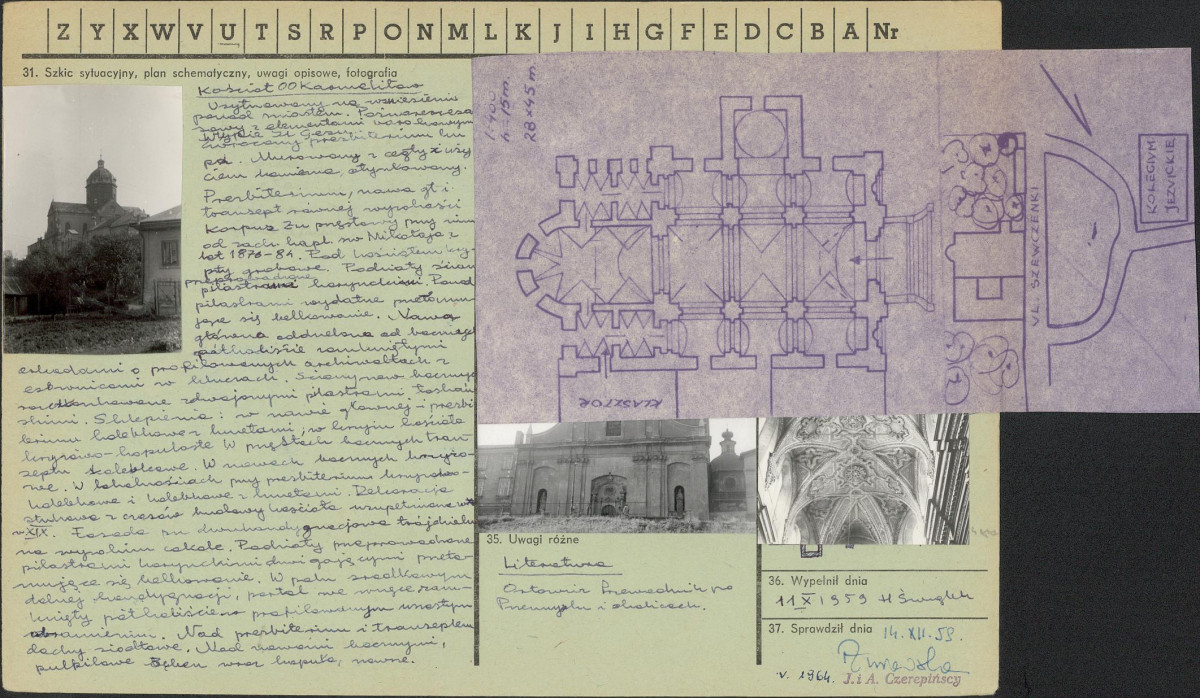 Z Y X W V U T S R P O N M L K J I H G F E D C B A Nr
31. Szkic sytuacyjny, plan schematyczny, uwagi opisowe, fotografia
Kościół OO Karmelitów
Usytuowany na wzniesieniu
ponad miastem. Późnorenesan
sowy z elementami barokowymi
zwrócony prezbiterium ku
pd. Murowany z cegły z uży
ciem kamienia, otynkowany.
Prezbiterium, nawa gł. i
transept równej wysokości
Korpus 3 u przęsłowy przy nim
od zach. kapl. św Mikołaja z
lat 1876-84. Pod kościołem kry-
pty grobowe. Podziały ścian
przeprowadzone
pilastrami korynckimi Ponad
pilastrami wydatne przełamu
jące się belkowanie. Nawa
główna oddzielona od bocznych
półkoliście zamkniętymi
arkadami o profilowanych archiwoltach z
w kluczach. Ściany naw bocznych
zdwojonymi pilastrami toskań
skimi. Sklepienia: w nawie głównej i prezbi
terium kolebkowe z lunetami, w krzyżu kościoła
krzyżowo-kopulaste W przęsłach bocznych tran
septu kolebkowe. W nawach bocznych krzyżo-
we. W lokalnościach przy prezbiterium krzyżowo-
kolebkowe i kolebkowe z lunetami. Dekoracja
stiukowa z czasów budowy kościoła uzupełniona
w XIX. Fasada trójdzielna
na wysokim cokole. Podziały przeprowadzone
pilastrami korynckimi dwigającymi przeła-
mujące się belkowanie. W polu środkowym
dolnej kondygnacji, portal we wnęce zam-
knięty półkoliście w profilowanym
obramieniu. Nad prezbiterium i transeptem
dachy siodłowe. Nad nawami bocznymi,
pulpitowe Hełm wraz kopułą, nowne.
1:400
h - 15m.
28 x 45 m.
KLASZTOR
UL. SZEWCZENKI
KOLEGIUM
JEZUICKIE
35. Uwagi różne
Literatura
Orłowicz Przewodnik po
Przemyślu i okolicach.
36. Wypełnił dnia
11 X 1959 H Świątek
37. Sprawdził dnia 14.XII.59.
v. 1964. J. i A. Czerepińscy